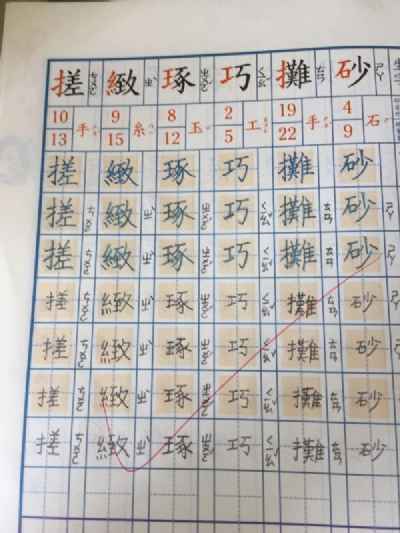 搓 ㄘㄨㄛ 緻 ㄓˋ 琢 ㄓㄨㄛˊ 巧 ㄑㄧㄠˇ 攤 ㄊㄢ 砂 ㄕㄚ
10 手 9 糸 8 玉 2 工 19 手 4 石
13 15 12 5 22 9
搓 緻 琢 巧 攤 砂
搓 ㄘㄨㄛ 緻 ㄓˋ 琢 ㄓㄨㄛˊ 巧 ㄑㄧㄠˇ 攤 ㄊㄢ 砂 ㄕㄚ
搓 ㄘㄨㄛ 緻 ㄓˋ 琢 ㄓㄨㄛˊ 巧 ㄑㄧㄠˇ 攤 ㄊㄢ 砂 ㄕㄚ
搓 ㄘㄨㄛ 緻 ㄓˋ 琢 ㄓㄨㄛˊ 巧 ㄑㄧㄠˇ 攤 ㄊㄢ 砂 ㄕㄚ
搓 ㄘㄨㄛ 緻 ㄓˋ 琢 ㄓㄨㄛˊ 巧 ㄑㄧㄠˇ 攤 ㄊㄢ 砂 ㄕㄚ
搓 ㄘㄨㄛ 緻 ㄓˋ 琢 ㄓㄨㄛˊ 巧 ㄑㄧㄠˇ 攤 ㄊㄢ 砂
搓 ㄘㄨㄛ 緻 ㄓˋ 琢 ㄓㄨㄛˊ 巧 ㄑㄧㄠˇ 攤 ㄊㄢ 砂